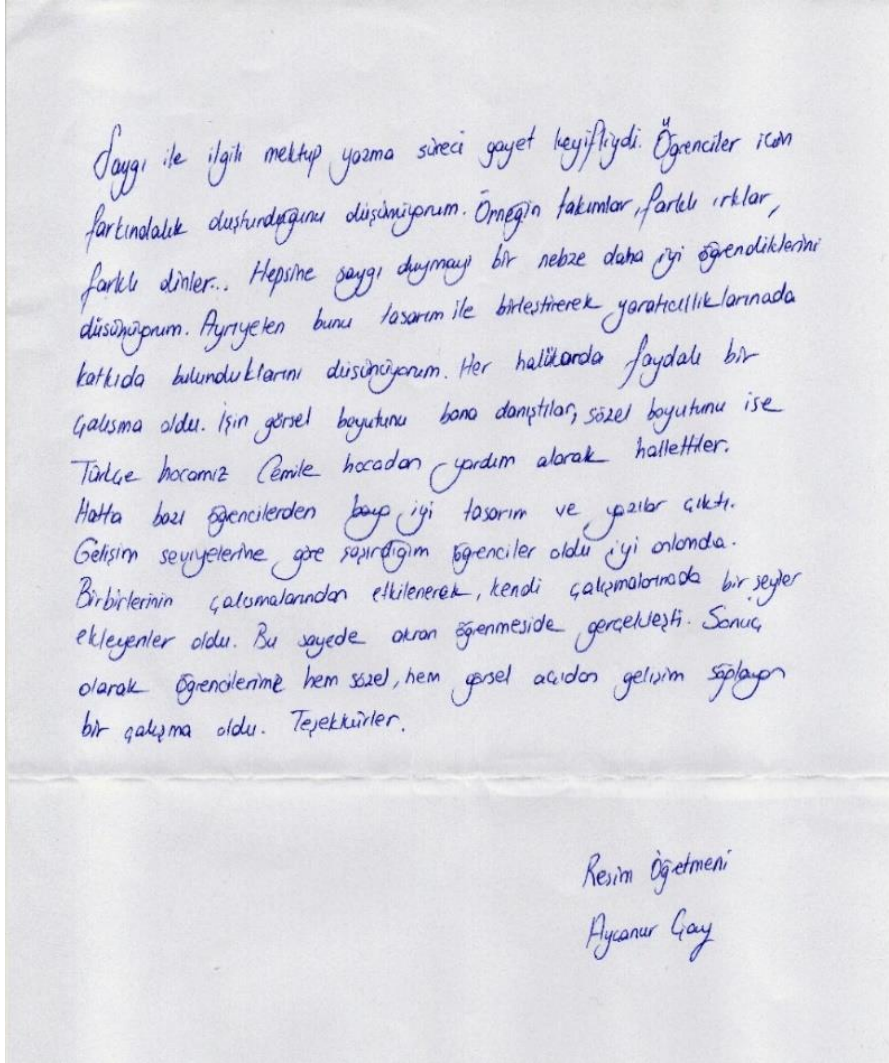 Saygı ile ilgili mektup yazma süreci gayet keyifliydi. Öğrenciler icin
farkındalık duşturduğunu düşünüyorum. Örneğin takımlar, farklı ırklar,
farklı dinler... Hepsine saygı duymayı bir nebze daha iyi öğrendiklerini
düşünüyorum. Ayrıyeten bunu tasarım ile birleştirerek yaratıcıllıklarınada
katkıda bulunduklarını düşünüyorum. Her halükarda faydalı bir
çalışma oldu. İşin görsel boyutunu bana danıştılar, sözel boyutunu ise
Türkçe hocamız Cemile hocadan yardım alarak hallettiler.
Hatta bazı öğrencilerden baya iyi tasarım ve yazılar çıktı.
Gelişim seviyelerine göre şaşırdığım öğrenciler oldu iyi anlamda.
Birbirlerinin çalışmalarından etkilenerek, kendi çalışmalarınada bir şeyler
ekleyenler oldu. Bu sayede akran öğrenmeside gerçekleşti. Sonuç
olarak öğrencilerime hem sözel, hem görsel açıdan gelişim sağlayan
bir çalışma oldu. Teşekkürler.
Resim Öğretmeni
Aycanur Çay